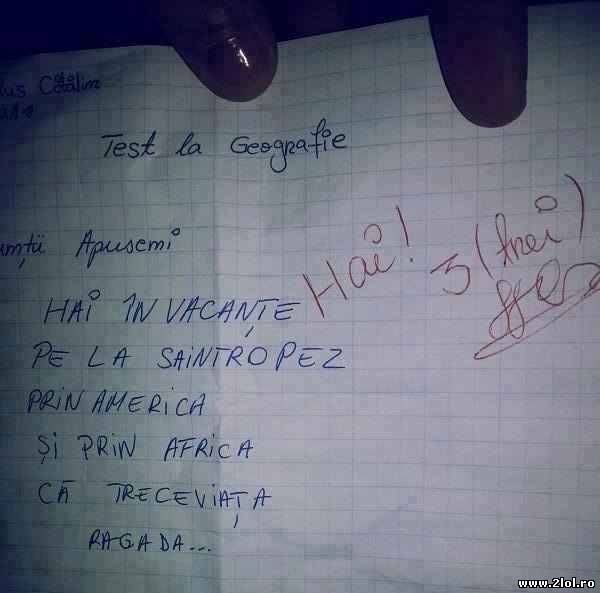 Cătălin
Test la Geografie
Apuseni
HAI ÎN VACANȚE
Hai! 3 (trei)
PE LA SAINTROPEZ
PRIN AMERICA
ȘI PRIN AFRICA
CĂ TRECEVIAȚA
RAGADA...
www.2lol.ro